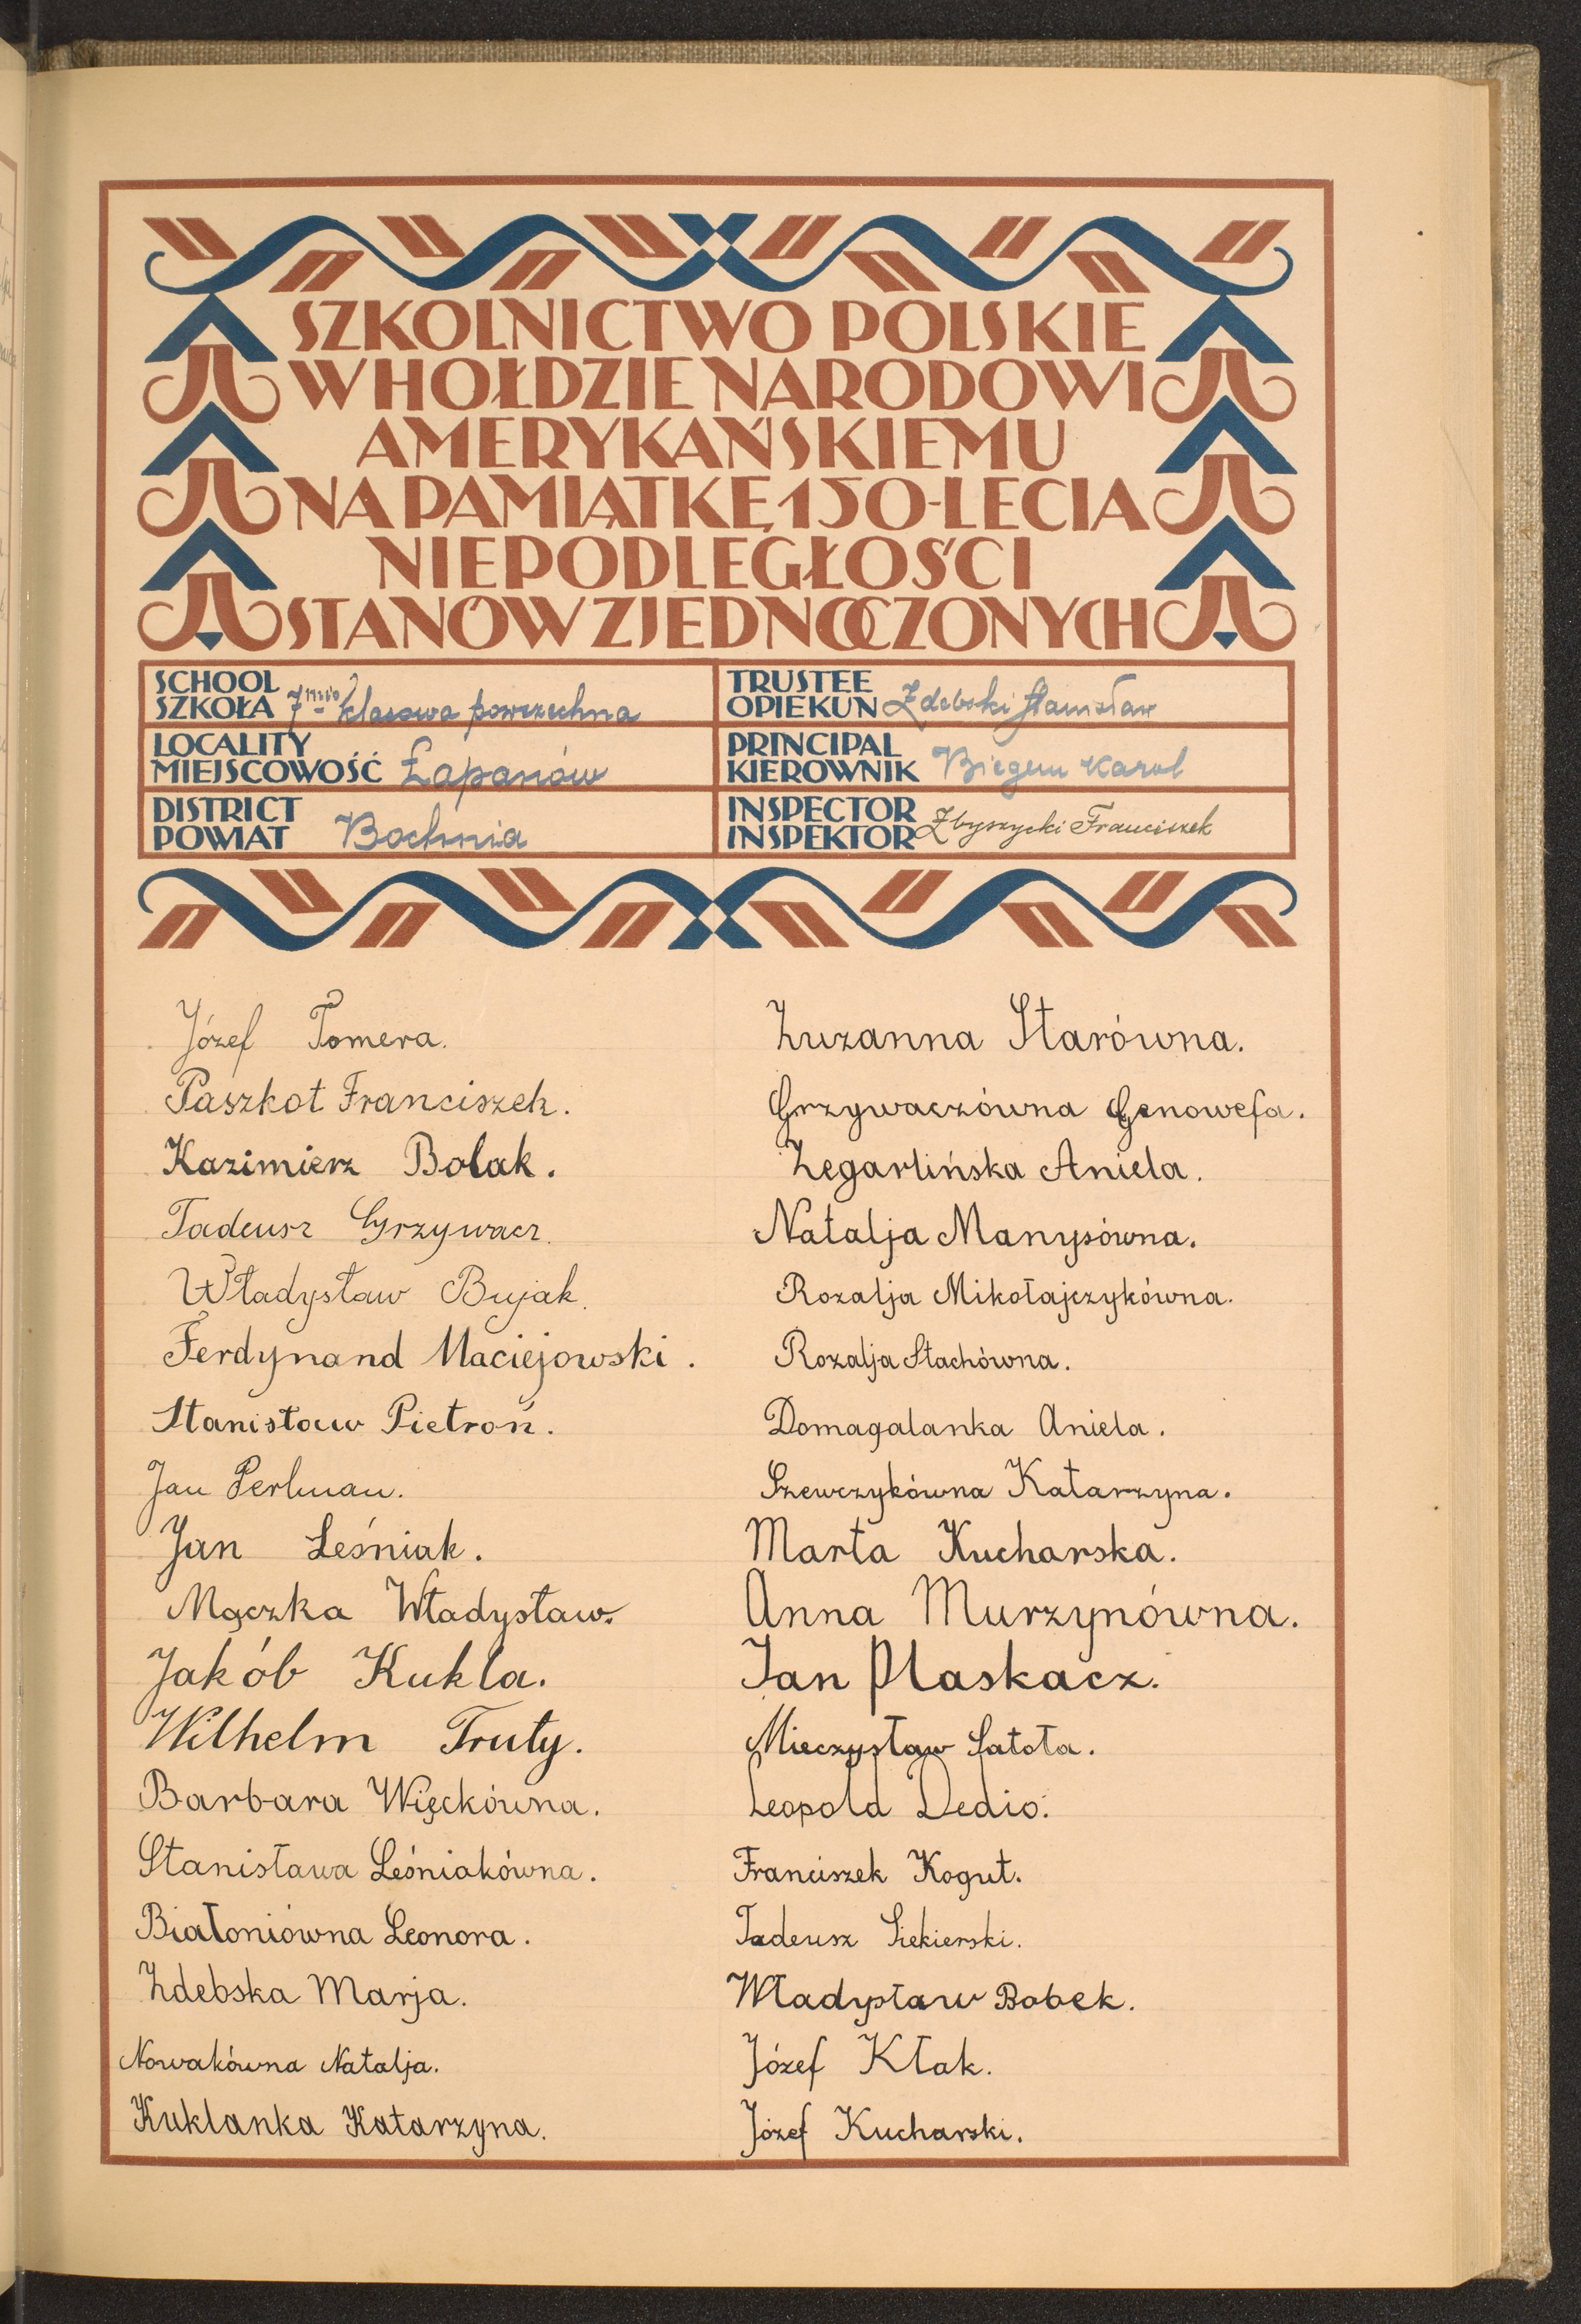 SZKOLNICTWO POLSKIE
W HOŁDZIE NARODOWI
AMERYKAŃSKIEMU
NA PAMIĄTKĘ 150-LECIA
NIEPODLEGŁOŚCI
STANÓW ZJEDNOCZONYCH
SCHOOL
SZKOŁA 7mio klasowa powszechna
LOCALITY
MIEJSCOWOŚĆ Łapanów
DISTRICT
POWIAT Bochnia
TRUSTEE
OPIEKUN Zdebski Stanisław
PRINCIPAL
KIEROWNIK Biegun Karol
INSPECTOR
INSPEKTOR Zbyszycki Franciszek
Józef Tomera.
Paszkot Franciszek.
Kazimierz Bolak.
Tadeusz Grzywacz.
Władysław Bujak.
Ferdynand Maciejowski.
Stanisław Pietroń.
Jan Perlman.
Jan Leśniak.
Mączka Władysław.
Jakób Kukla.
Wilhelm Truty.
Barbara Więckówna.
Stanisława Leśniakówna.
Białoniówna Leonora.
Zdebska Marja.
Nowakówna Natalja.
Kuklanka Katarzyna.
Zuzanna Starówna.
Grzywaczówna Genowefa.
Zegarlińska Aniela.
Natalja Manysówna.
Rozalja Mikołajczykówna.
Rozalja Stachówna.
Domagalanka Aniela.
Szewczykówna Katarzyna.
Marta Kucharska.
Anna Murzynówna.
Jan Plaskacz.
Mieczysław Satoła.
Leopold Dedio.
Franciszek Kogut.
Tadeusz Siekierski.
Władysław Bobek.
Józef Kłak.
Józef Kucharski.